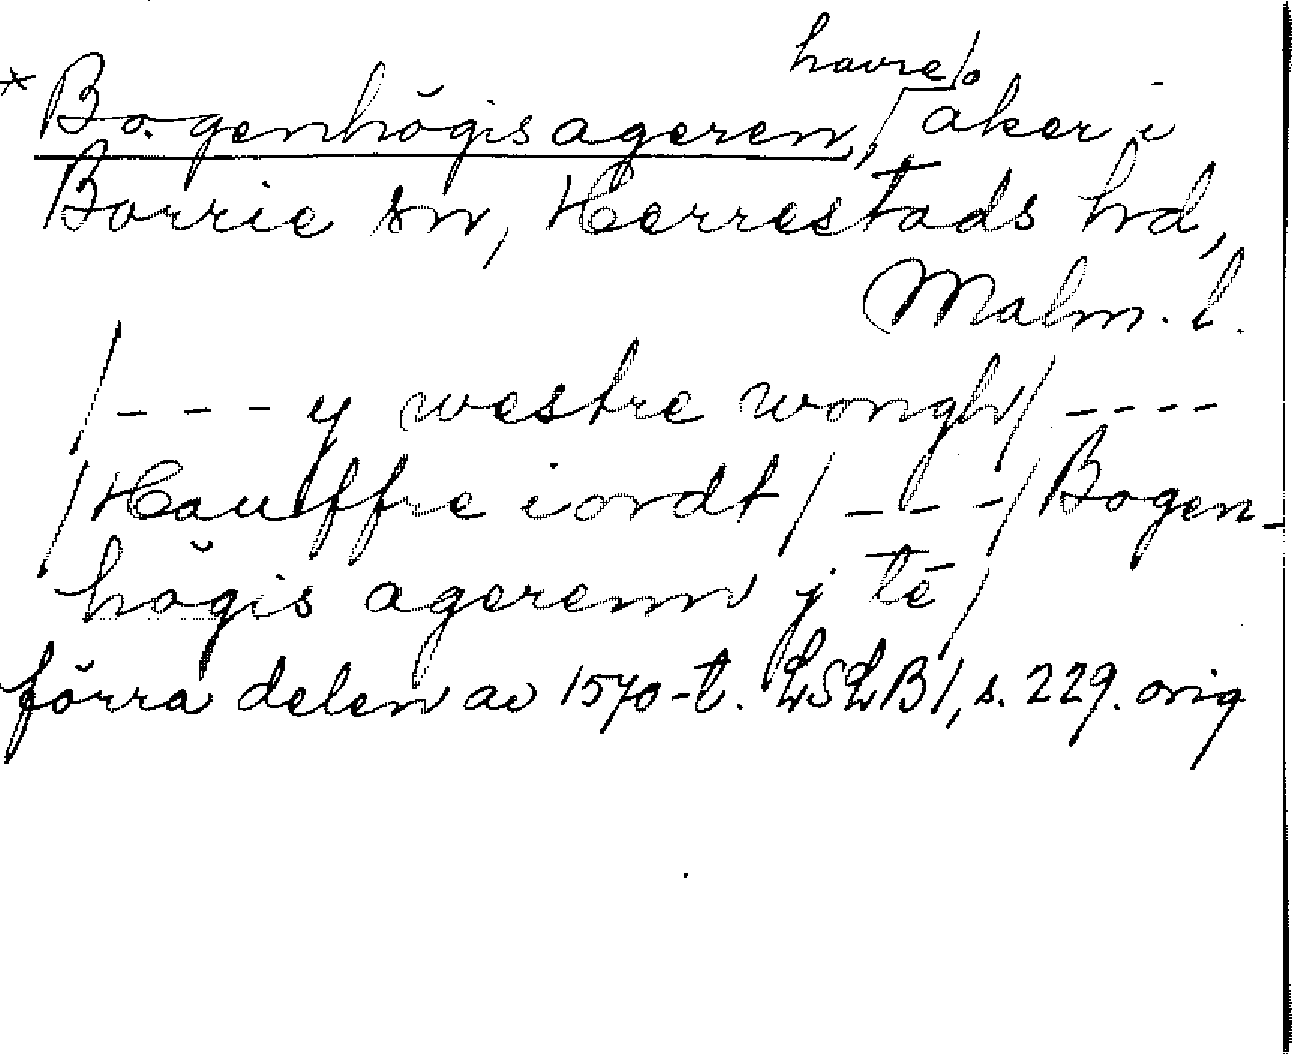 havre/
* Bogenhögis ageren, åker i
Borrie sn, Herrestads hd,
Malm. l.
/---y westre wongh/----
/Hauffre iordt/---/Bogen-
högis agerenn j tē/
förra delen av 1570-t. LSLB1, s. 229. orig